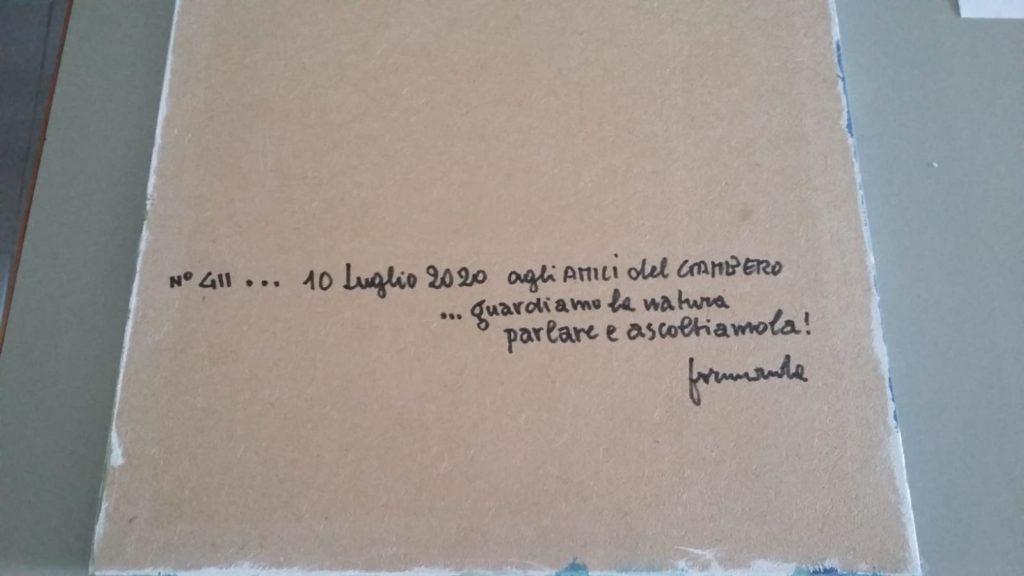 N° 411 ... 10 Luglio 2020 agli AMICI del GAMBERO
... guardiamo la natura
parlare e ascoltiamola!